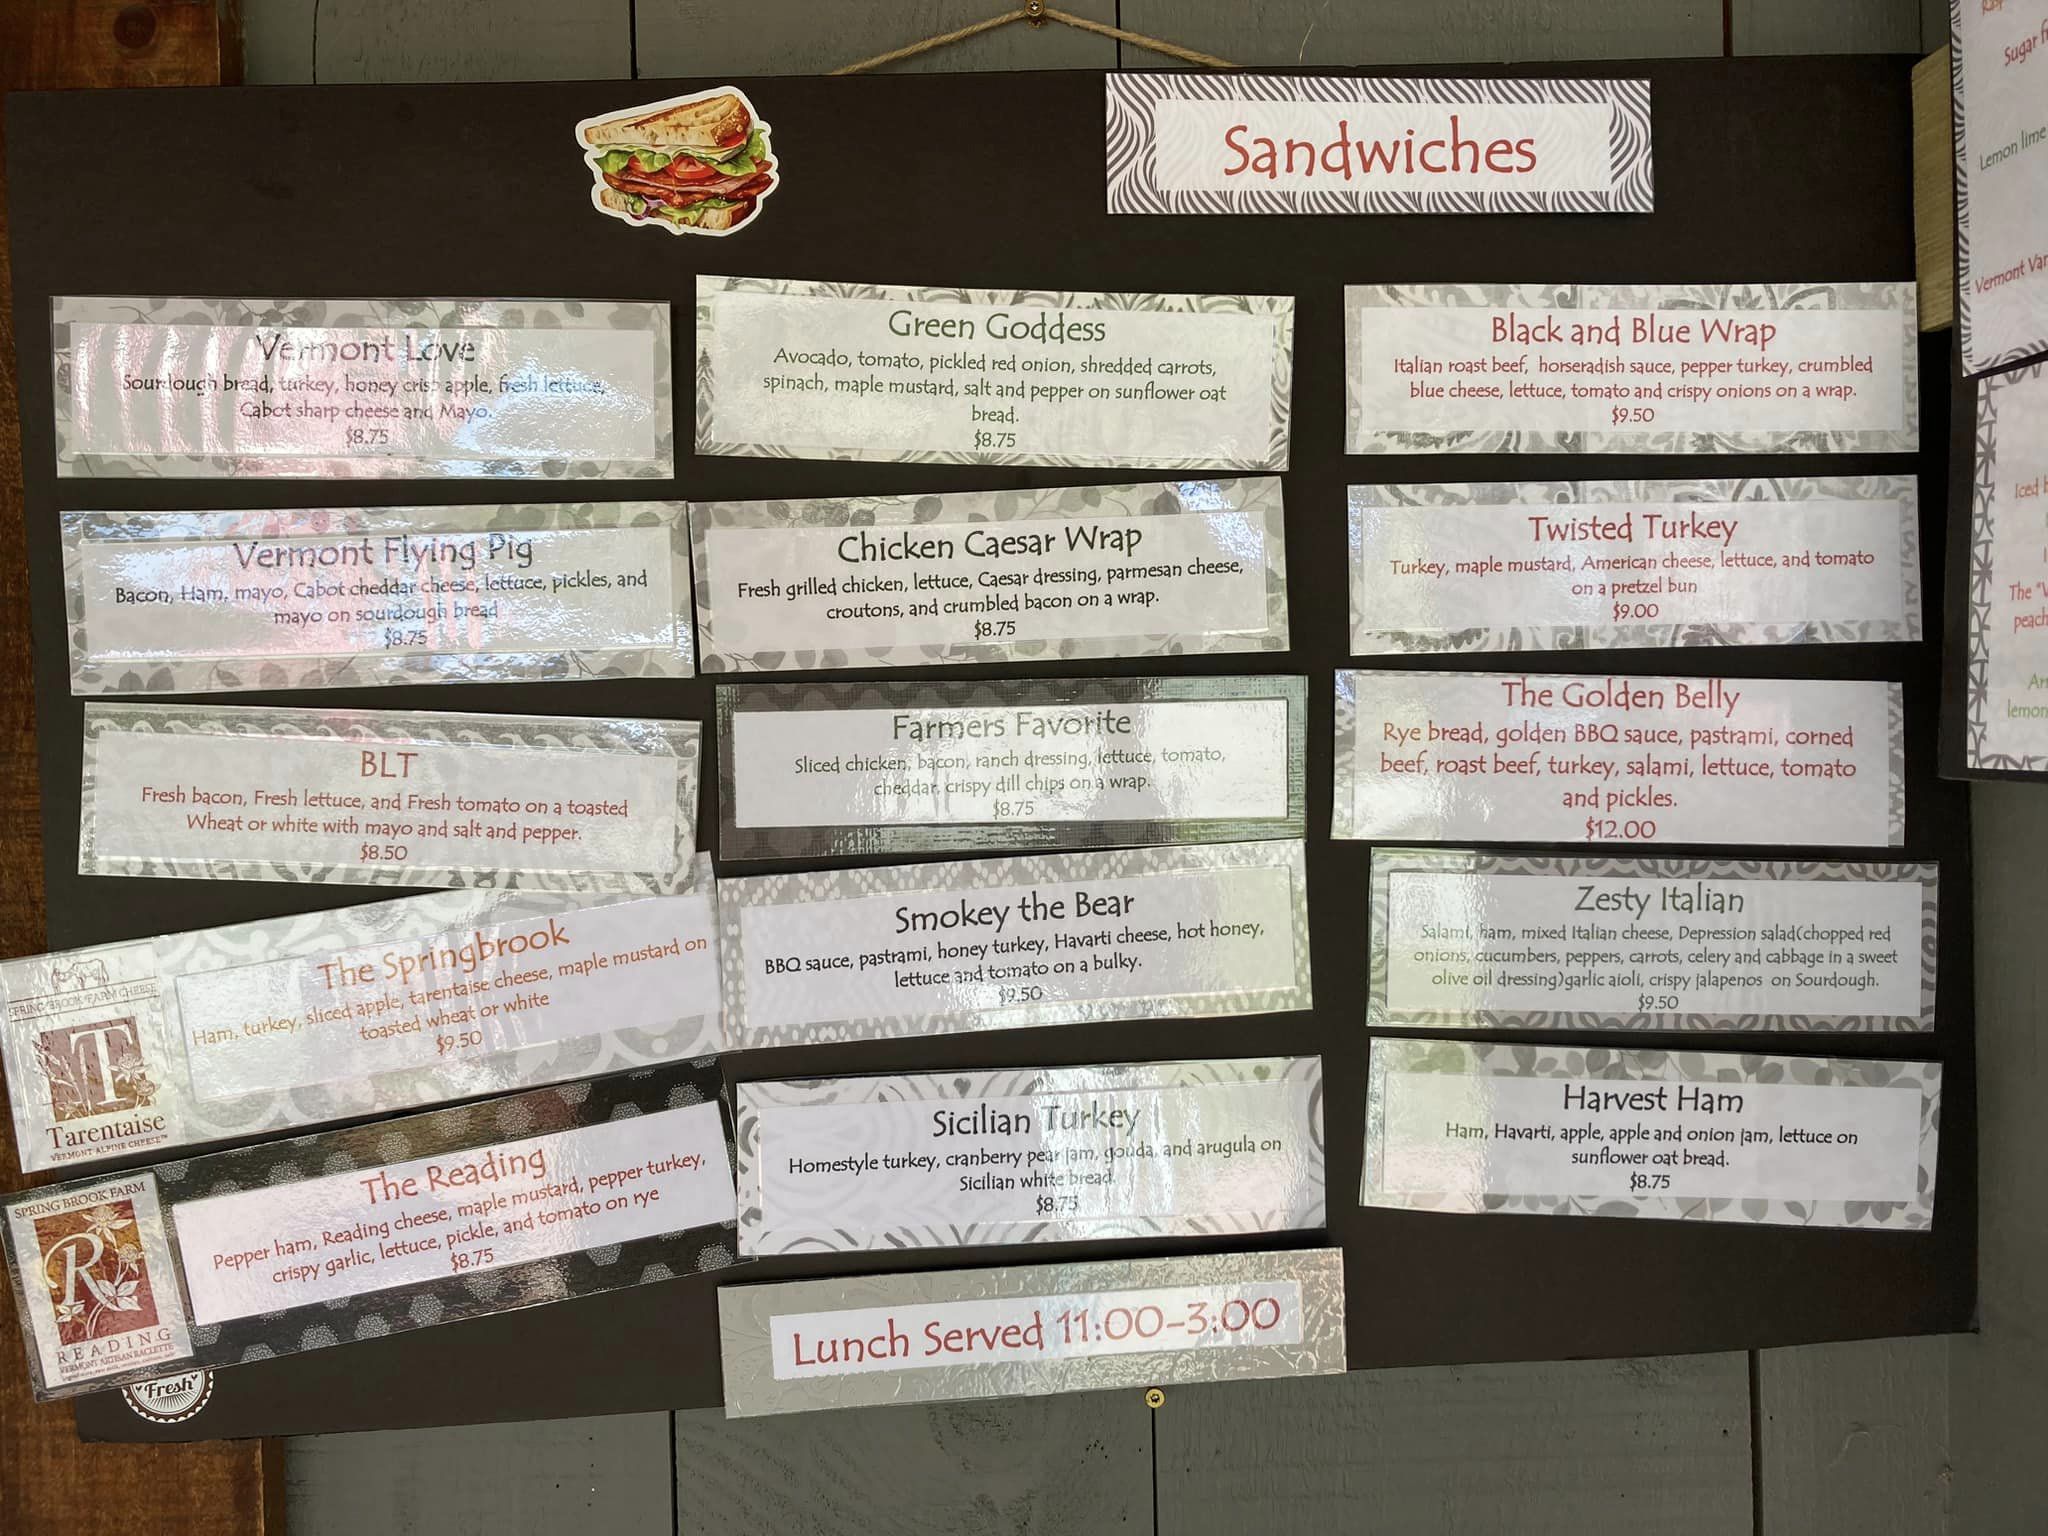 Sandwiches
Vermont Love
Sourdough bread, turkey, honey crisp apple, fresh lettuce,
Cabot sharp cheese and Mayo.
$8.75
Vermont Flying Pig
Bacon, Ham, mayo, Cabot cheddar cheese, lettuce, pickles, and
mayo on sourdough bread
$8.75
BLT
Fresh bacon, Fresh lettuce, and Fresh tomato on a toasted
Wheat or white with mayo and salt and pepper.
$8.50
The Springbrook
Ham, turkey, sliced apple, tarentaise cheese, maple mustard on
toasted wheat or white
$9.50
SPRING BROOK FARM CHEESE
T
Tarentaise
VERMONT ALPINE CHEESE™
The Reading
Pepper ham, Reading cheese, maple mustard, pepper turkey,
crispy garlic, lettuce, pickle, and tomato on rye
$8.75
SPRING BROOK FARM
R
READING
VERMONT ARTISAN RACLETTE
Fresh
Green Goddess
Avocado, tomato, pickled red onion, shredded carrots,
spinach, maple mustard, salt and pepper on sunflower oat
bread.
$8.75
Chicken Caesar Wrap
Fresh grilled chicken, lettuce, Caesar dressing, parmesan cheese,
croutons, and crumbled bacon on a wrap.
$8.75
Farmers Favorite
Sliced chicken, bacon, ranch dressing, lettuce, tomato,
cheddar, crispy dill chips on a wrap.
$8.75
Smokey the Bear
BBQ sauce, pastrami, honey turkey, Havarti cheese, hot honey,
lettuce and tomato on a bulky.
$9.50
Sicilian Turkey
Homestyle turkey, cranberry pear jam, gouda, and arugula on
Sicilian white bread.
$8.75
Lunch Served 11:00-3:00
Black and Blue Wrap
Italian roast beef, horseradish sauce, pepper turkey, crumbled
blue cheese, lettuce, tomato and crispy onions on a wrap.
$9.50
Twisted Turkey
Turkey, maple mustard, American cheese, lettuce, and tomato
on a pretzel bun
$9.00
The Golden Belly
Rye bread, golden BBQ sauce, pastrami, corned
beef, roast beef, turkey, salami, lettuce, tomato
and pickles.
$12.00
Zesty Italian
Salami, ham, mixed Italian cheese, Depression salad(chopped red
onions, cucumbers, peppers, carrots, celery and cabbage in a sweet
olive oil dressing)garlic aioli, crispy jalapenos on Sourdough.
$9.50
Harvest Ham
Ham, Havarti, apple, apple and onion jam, lettuce on
sunflower oat bread.
$8.75
Sugar
Lemon lime
Vermont
Iced
The
peach
lemon